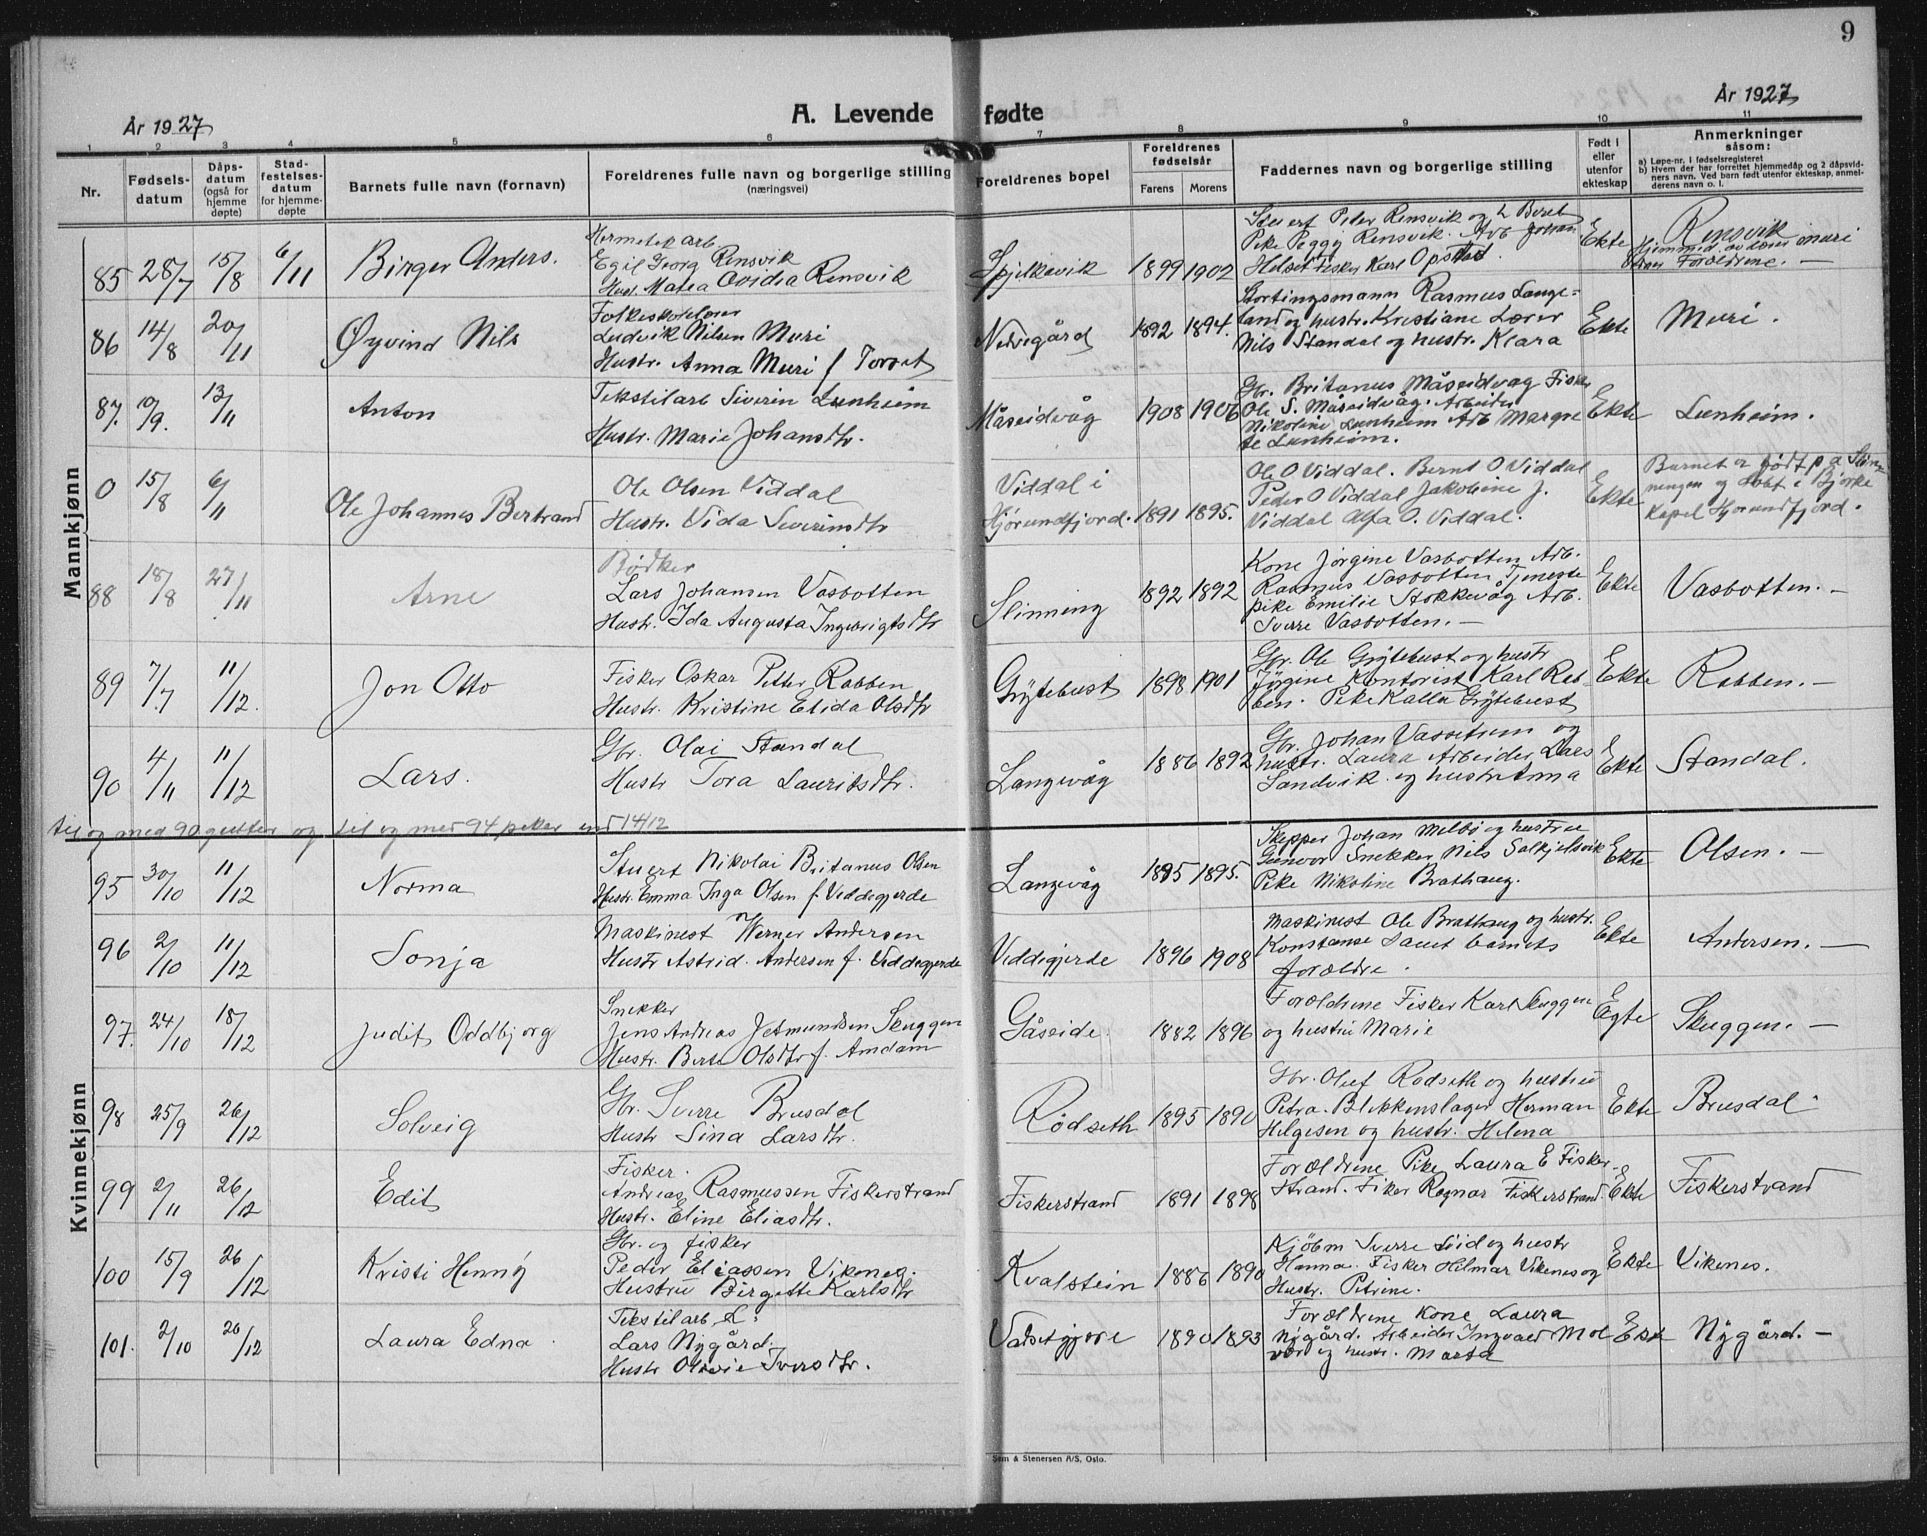 9
År 1927
A. Levende fødte
År 1927
1 2 3 4 5 6 7 8 9 10 11
Nr.
Fødsels-
datum
Dåps-
datum
(også for
hjemme
døpte)
Stad-
festelses-
datum
for hjemme-
døpte
Barnets fulle navn (fornavn)
Foreldrenes fulle navn og borgerlige stilling
(næringsvei)
Foreldrenes bopel
Foreldrenes
fødselsår
Farens Morens
Faddernes navn og borgerlige stilling
Født i
eller
utenfor
ekteskap
Anmerkninger
såsom:
a) Løpe-nr. i fødselsregisteret
b) Hvem der har forrettet hjemmedåp og 2 dåpsvid-
ners navn. Ved barn født utenfor ekteskap, anmel-
derens navn o. l.
Mannkjønn
85 28/7 15/8 6/11 Birger Anders.
Hermetek arb
Egil Georg Rensvik
Hust. Matea Ovidia Rensvik
Spjelkavik 1899 1902
Stuert Peder Rensvik og
Pike Peggy Rensvik. Arb Johan
Helset Fisker Karl Opstad.
Ekte
Rensvik
Hjemmed av lærer Muri
Foreldrene. —
86 14/8 20/11 Øyvind Nils
Folkeskolelærer
Ludvik Nilsen Muri
Hustr. Anna Muri f Torset
Nedregård 1892 1894.
Stortingsmann Rasmus Lange=
land og hustr. Kristiane Lærer
Nils Standal og hustr. Klara
Ekte Muri.
87. 10/9. 13/11 Anton
Tekstilarb Siverin Lunheim
Hustr. Marie Johansdtr.
Måseidvåg 1908 1906
Gbr. Britanus Måseidvåg Fisker
Ole S. Måseidvåg. Arbeider
Nikoline Lunheim Arb Margre
te Lunheim.
Ekte Lunheim.
0 15/8 6/11 Ole Johannes Bertrand
Ole Olsen Viddal
Hustr. Vida Severinsdtr
Viddal i
Hjørundfjord. 1891 1895.
Ole O Viddal. Bernt O Viddal
Peder O Viddal Jakobine J.
Viddal Alfa O. Viddal.
Ekte
Barnet er født på Slin
ningen og døbt i Bjørke
Kapel Hjørundfjord.
88 18/8 27/11 Arne
Bødker
Lars Johansen Vasbotten
Hustr. Ida Augusta Ingebrigtsdtr
Slinning 1892 1892
Kone Jørgine Vasbotten Arb.
Rasmus Vasbotten Tjeneste
pike Emilie Stokkevåg Arb.
Sverre Vasbotten. —
Ekte Vasbotten. —
89 7/7. 11/12. Jon Otto
Fisker Oskar Petter Rabben
Hustr. Kristine Elida Olsdtr
Grytebust 1898 1901
Gbr. Ole Grytebust og hustr
Jørgine Kontorist Karl Rab-
ben. Pike Kalla Grytebust
Ekte Rabben. —
90 4/11 11/12 Lars.
Gbr. Olai Standal
Hustr Tora Lauritsdtr.
Langevåg 1886 1892
Gbr. Johan Vassetren og
hustr. Laura Arbeider Lars
Sandvik og hustr Anna
Ekte Standal.
til og med 90 gutter og til og med 94 piker 14/12
Kvinnekjønn
95 30/10 11/12 Norma
Stuert Nikolai Britanus Olsen
Hustr. Emma Inga Olsen f. Veddegjerde
Langevåg 1895 1895.
Skipper Johan Melbø og hustru
Gunvor Snekker Nils Salkjelsvik
Pike Nikoline Brathaug.
Ekte Olsen. —
96 2/10 11/12 Sonja
Maskinest Werner Andersen
Hustr Astrid. Andersen f. Veddegjerde
Veddegjerde 1896 1908
Maskinest Ole Brathaug og hustr.
Konstanse samt barnets
forældre.
Ekte Andersen. —
97. 24/10 18/12 Judit Oddbjørg
Snekker
Jens Andreas Jetmundsen Skuggen
Hustr. Berte Olsdtr f. Amdam
Gåseide. 1882 1896
Forældrene Fisker Karl Skuggen
og hustru Marie
Egte Skuggen. —
98 25/9 26/12 Solveig
Gbr. Sverre Brusdal
Hustr Sina Larsdtr.
Rødseth 1895 1890
Gbr. Oluf Rødseth og hustru
Petra. Blikkenslager Herman
Helgesen og hustr. Helena
Ekte Brusdal
99 2/11 26/12 Edit
Fisker.
Andreas Rasmussen Fiskerstrand
Hustr. Eline Eliasdtr.
Fiskerstrand 1891 1898
Forældrene Pike Laura E Fisker-
strand. Fisker Ragnar Fiskerstrand
Ekte Fiskerstrand
100 15/9 26/12 Kristi Henny
Gbr. og fisker
Peder Eliassen Vikenes.
Hustru Birgitte Karlsdtr
Kvalstein 1886 1890
Kjøbm Sverre Eiid og hustr
Hanna. Fisker Hilmar Vikenes og
Hustr. Petrine.
Ekte Vikenes.
101. 2/10 26/12 Laura Edna
Tekstilarb L.
Lars Nygård.
Hustr Olevie Iversdtr.
Vadsetgjøre 1890 1893
Forældrene Kone Laura
Nygård. Arbeider Ingvald Mol
vær og hustr. Marta
Ekte Nygård. —
Sem & Stenersen A/S, Oslo.